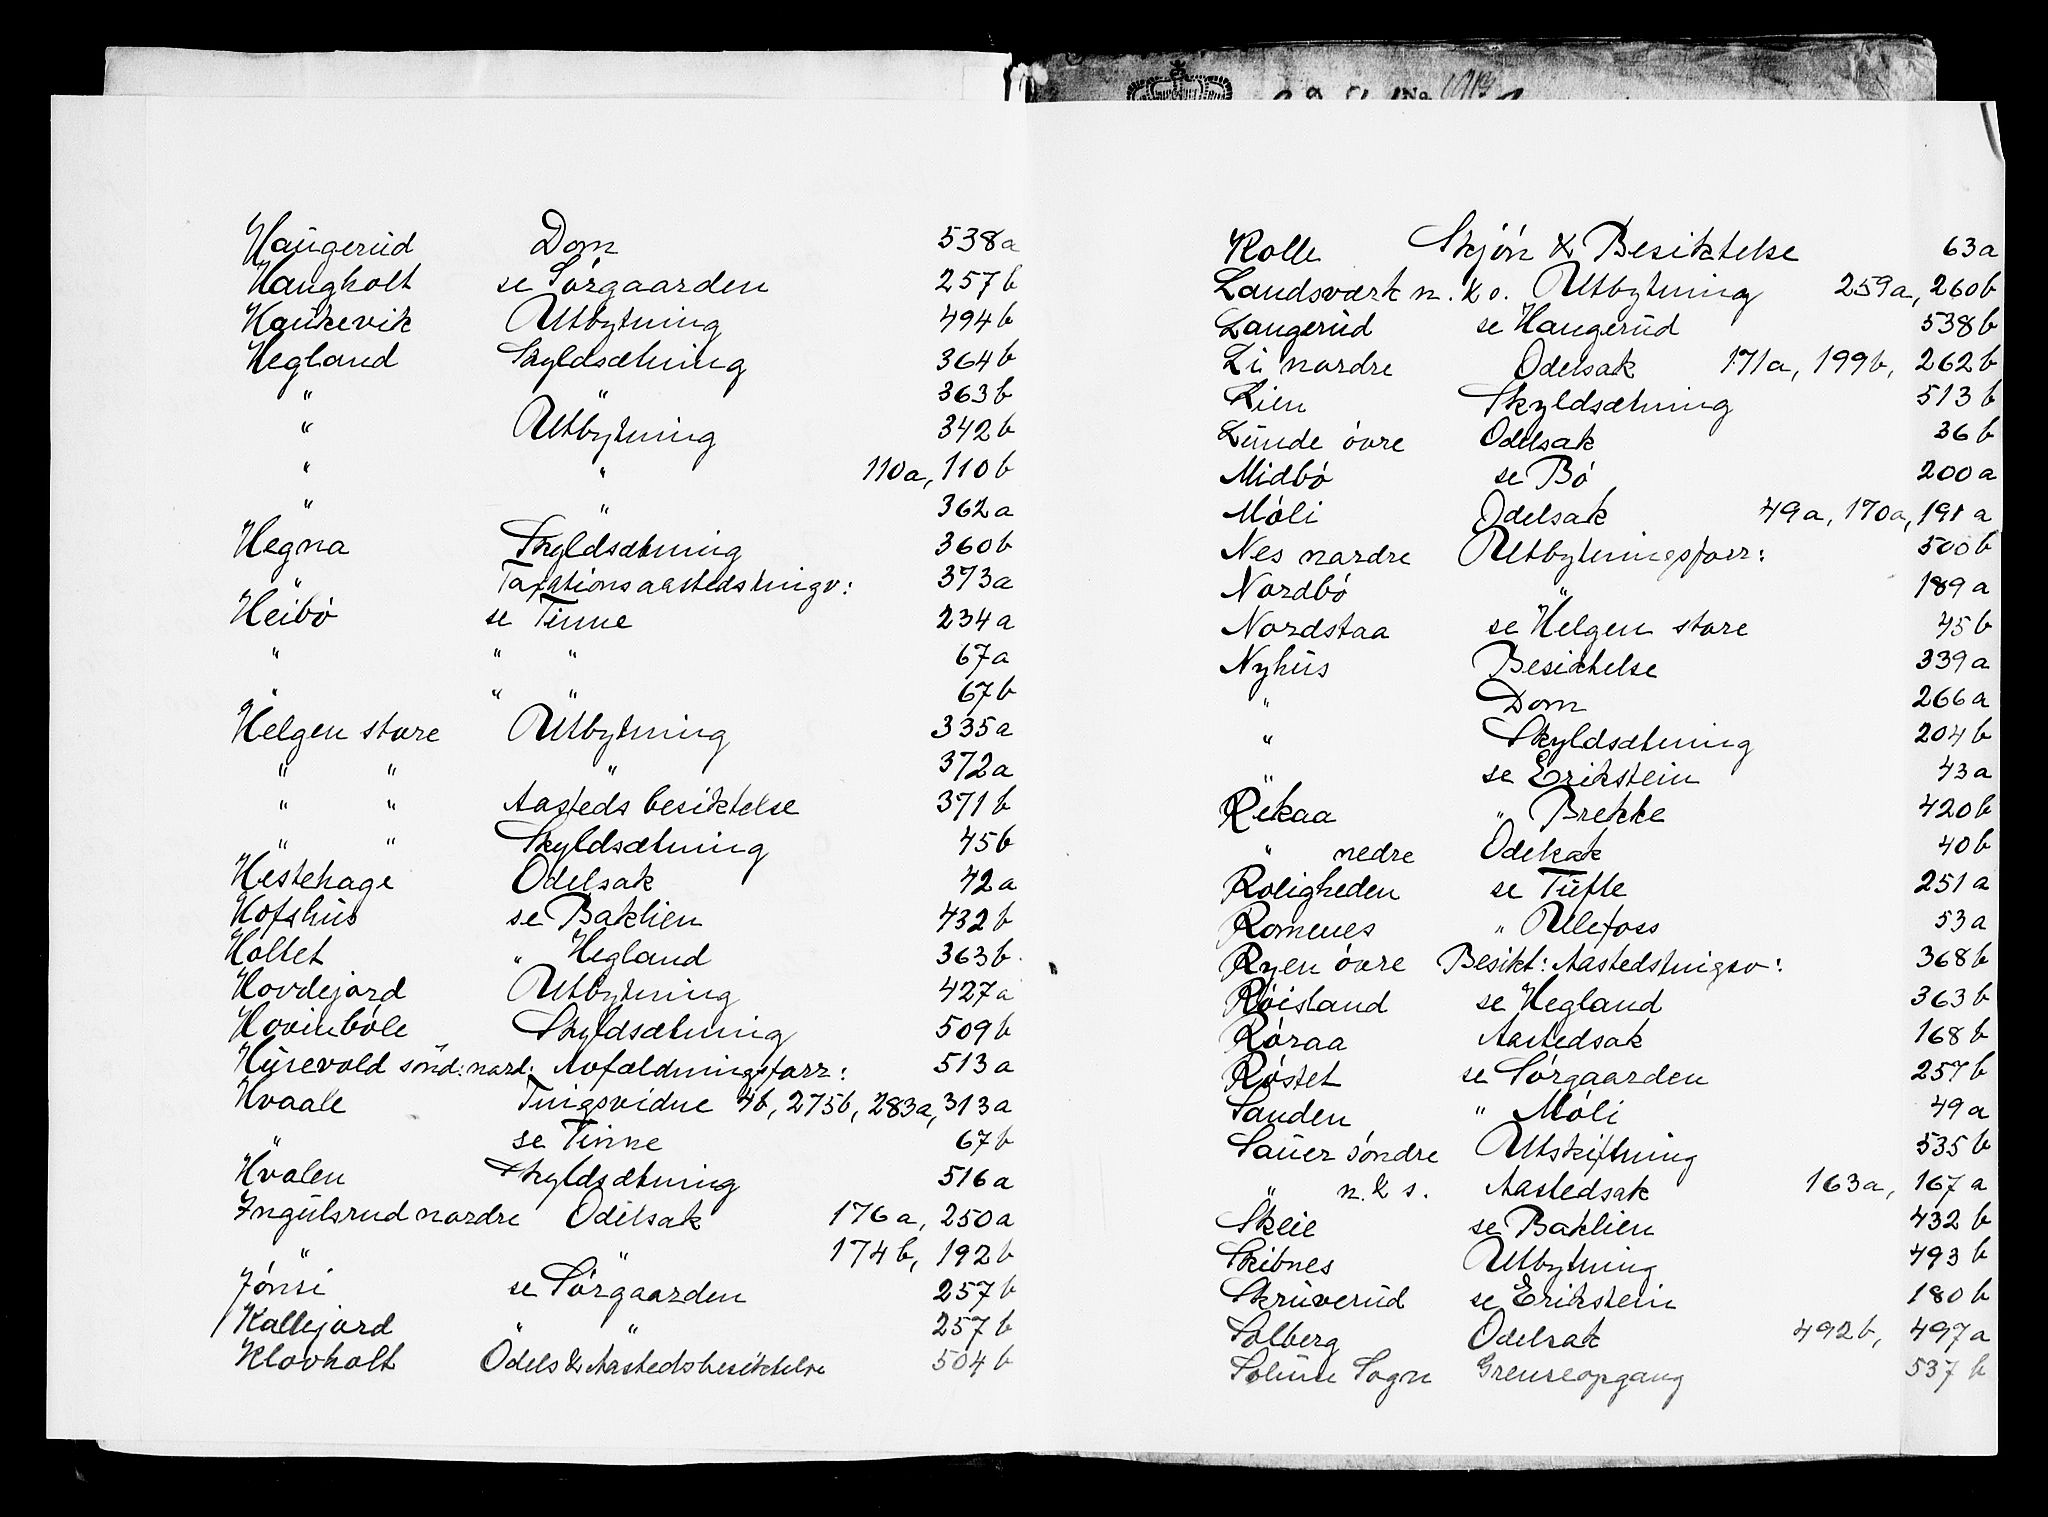 Haugerud Dom 538a
Haugholt se Sörgaarden 257b
Haukevik Utbytning 494b
Hegland Skyldsætning 364b
" " 363b
" Utbytning 342b
" " 110a, 110b
" " 362a
Hegna Skyldsætning 360b
" Taxationsaastedstingv: 373a
Heibö se Tinne 234a
" " " 67a
" " " 67b
Helgen store Utbytning 335a
" " " 372a
" " Aasteds besiktelse 371b
" " Skyldsætning 45b
Hestehage Odelsak 42a
Hofshus se Baklien 432b
Holtet " Hegland 363b
Hovdejord Utbytning 427a
Hovinböle Skyldsætning 509b
Husevold sönd: nord: Avfældningsforr: 513a
Hvaale Tingsvidne 4b, 275b, 283a, 313a
" se Tinne 67b
Hvalen Skyldsætning 516a
Ingulsrud nordre Odelsak 176a, 250a
" " 174b, 192b
Jönsi se Sörgaarden 257b
Kallejord " " 257b
Klovholt Odels & Aastedsbesiktelse 504b
Kolle Skjön & Besiktelse 63a
Landsværk n. & s. Utbytning 259a, 260b
Langerud se Haugerud 538b
Li nordre Odelsak 171a, 199b, 262b
Lien Skyldsætning 513b
Lunde övre Odelsak 36b
Midbö se Bö 200a
Möli Odelsak 49a, 170a, 191a
Nes nordre Utbytningsforr: 500b
Nordbö " 189a
Nordstaa se Helgen store 45b
Nyhus Besiktelse 339a
" Dom 266a
" Skyldsætning 204b
" se Erikstein 43a
Rekaa " Brekke 420b
" nedre Odelsak 40b
Roligheden se Tufte 251a
Romenes " Ulefoss 53a
Ryen övre Besikt: Aastedstingsv: 368b
Röisland se Hegland 363b
Röraa Aastedsak 168b
Röstet se Sörgaarden 257b
Sanden " Möli 49a
Sauer söndre Utskiftning 535b
" n. & s. Aastedsak 163a, 167a
Skeie se Baklien 432b
Skibnes Utbytning 493b
Skruverud se Erikstein 180b
Solberg Odelsak 492b, 497a
Solum Sogn Grenseopgang 537b